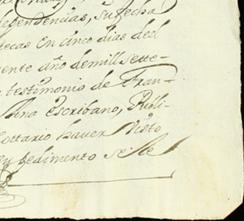 dependencias, su fecha
tecas en cinco dias del
ente año de mill sete=
testimonio de Fran=
Ano escribano, Publi=
Nottario haver Visto
pedimento se le